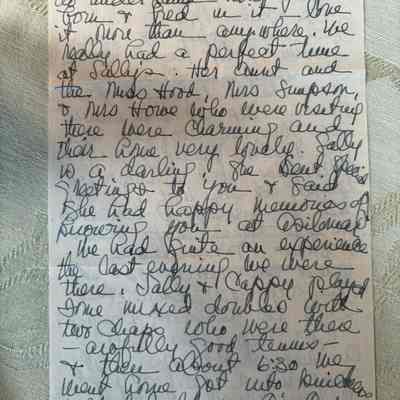 born & bred in it & love
it more than anywhere. We
really had a perfect time
at Sallys. Her aunt and
the Miss Hood, Mrs Simpson,
& Mrs Howe who were visiting
there were charming and
their home very lovely. Sally
is a darling. She sent
greetings to you & said
she had happy memories of
knowing you at Asilomar
We had quite an experience
the last evening we were
there. Sally & Cappy played
some mixed doubles with
two chaps who were there
– awfully good tennis –
& then about 6:30 we
went home got into